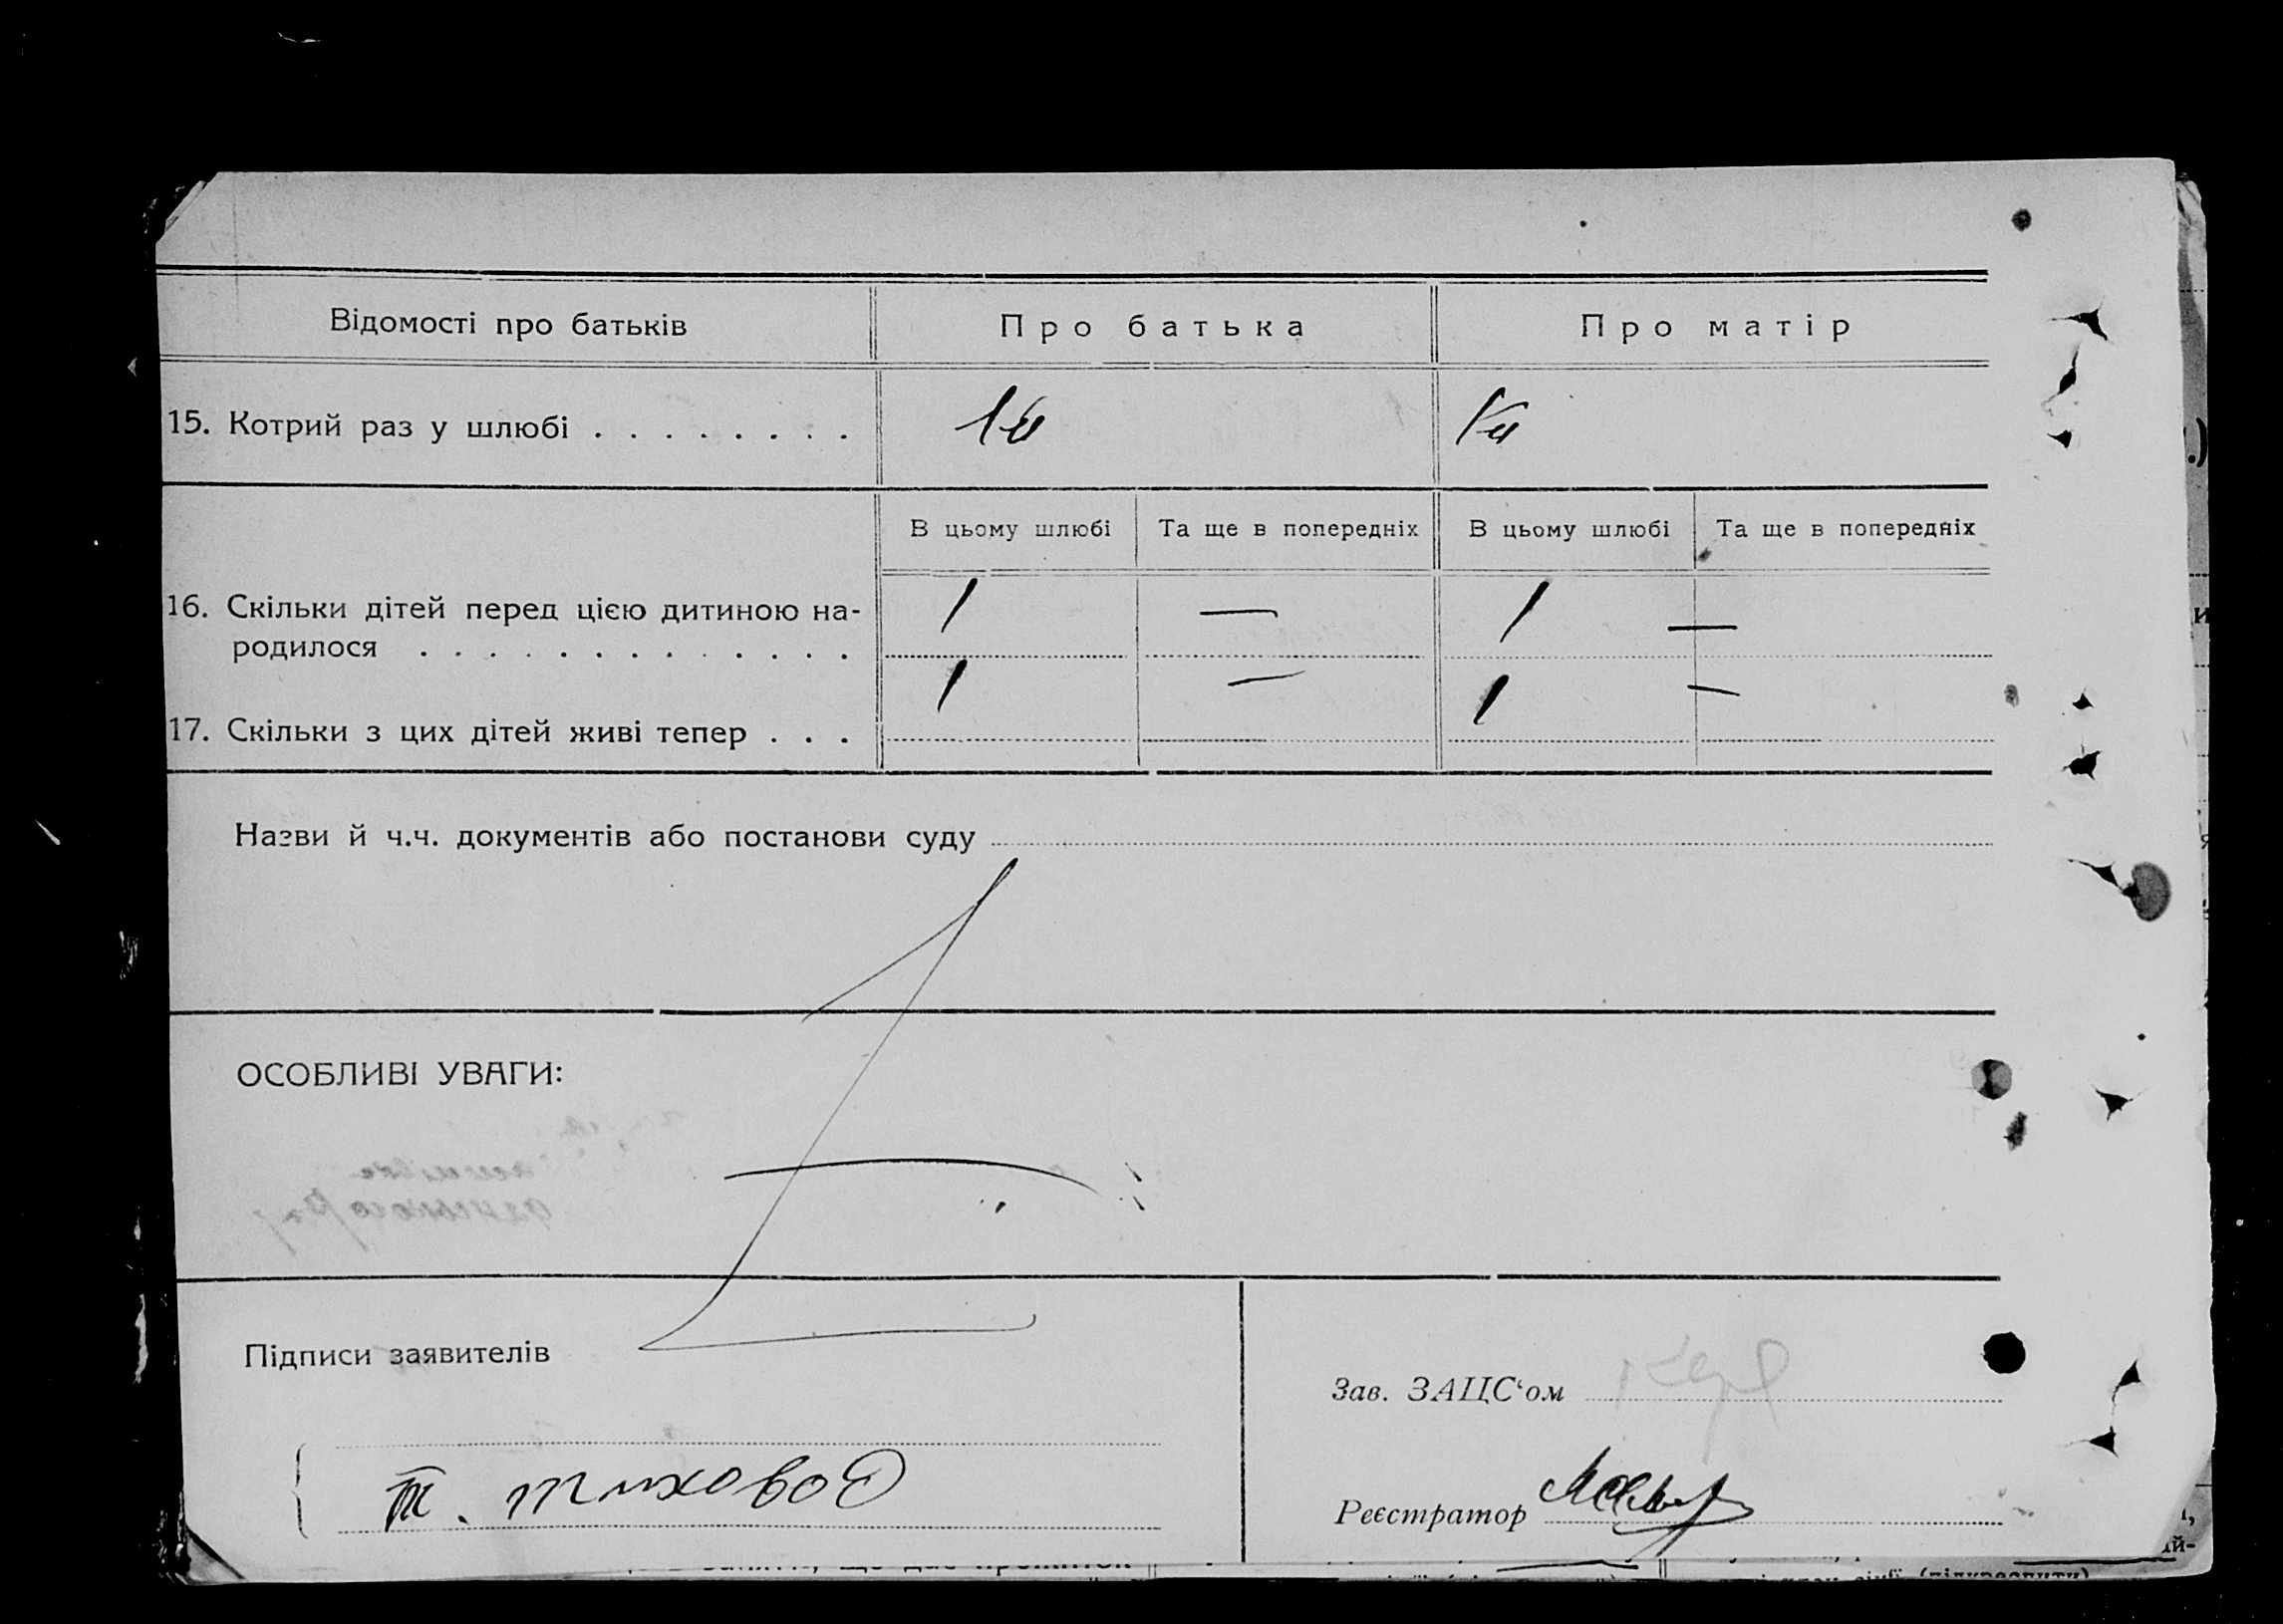 Відомості про батьків Про батька Про матір
15. Котрий раз у шлюбі . . . . . . . . 1й 1й
В цьому шлюбі Та ще в попередніх В цьому шлюбі Та ще в попередніх
16. Скільки дітей перед цією дитиною на-
родилося . . . . . . . . . . . . . 1 — 1 —
17. Скільки з цих дітей живі тепер . . . 1 — 1 —
Назви й ч.ч. документів або постанови суду
ОСОБЛИВІ УВАГИ:
Підписи заявителів
Зав. ЗАЦС‘ом
Т. Тиховод
Реєстратор